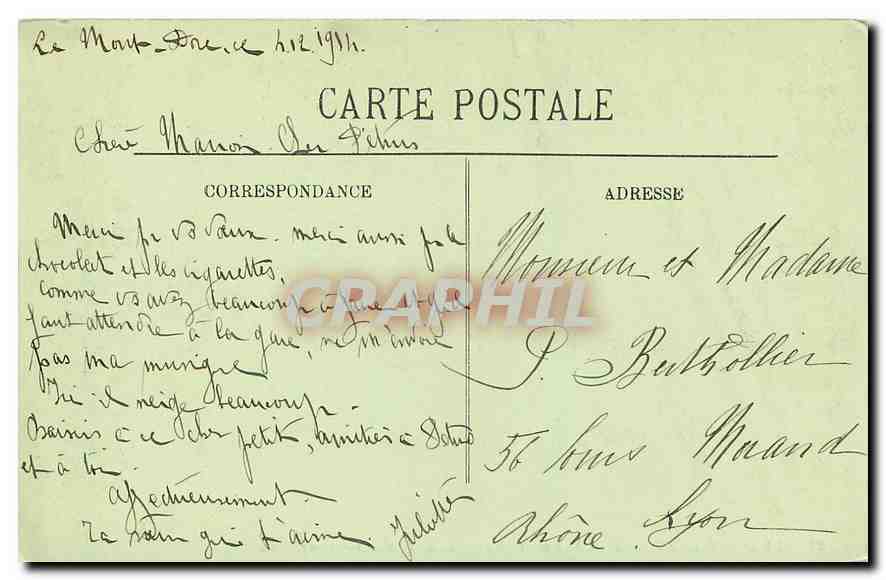 Le Mont-Dore, ce 4.12.1914.
CARTE POSTALE
Manon
CORRESPONDANCE
ADRESSE
Merci pr vs vœux. merci aussi pr le
chocolat et les cigarettes.
comme vs avez beaucoup à faire et qu'il
faut attendre à la gare, ne m'envoie
pas ma musique
Ici il neige beaucoup.
Baisers à ce cher petit, amitiés à
et à toi.
affectueusement
Ta sœur qui t'aime.
Monsieur et Madame
P. Berthollier
56 Cours Morand
Lyon
Rhône.
CPAPHIL